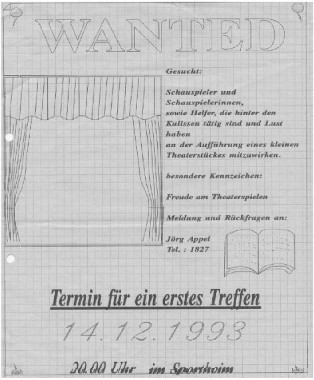 WANTED
Gesucht:
Schauspieler und
Schauspielerinnen,
sowie Helfer, die hinter den
Kulissen tätig sind und Lust
haben
an der Aufführung eines kleinen
Theaterstückes mitzuwirken.
besondere Kennzeichen:
Freude am Theaterspielen
Meldung und Rückfragen an:
Jörg Appel
Tel. : 1827
Termin für ein erstes Treffen
14.12.1993
20.00 Uhr im Sportheim